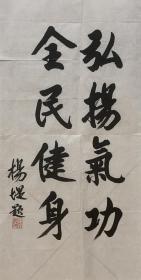 弘揚氣功
全民健身
楊堤題